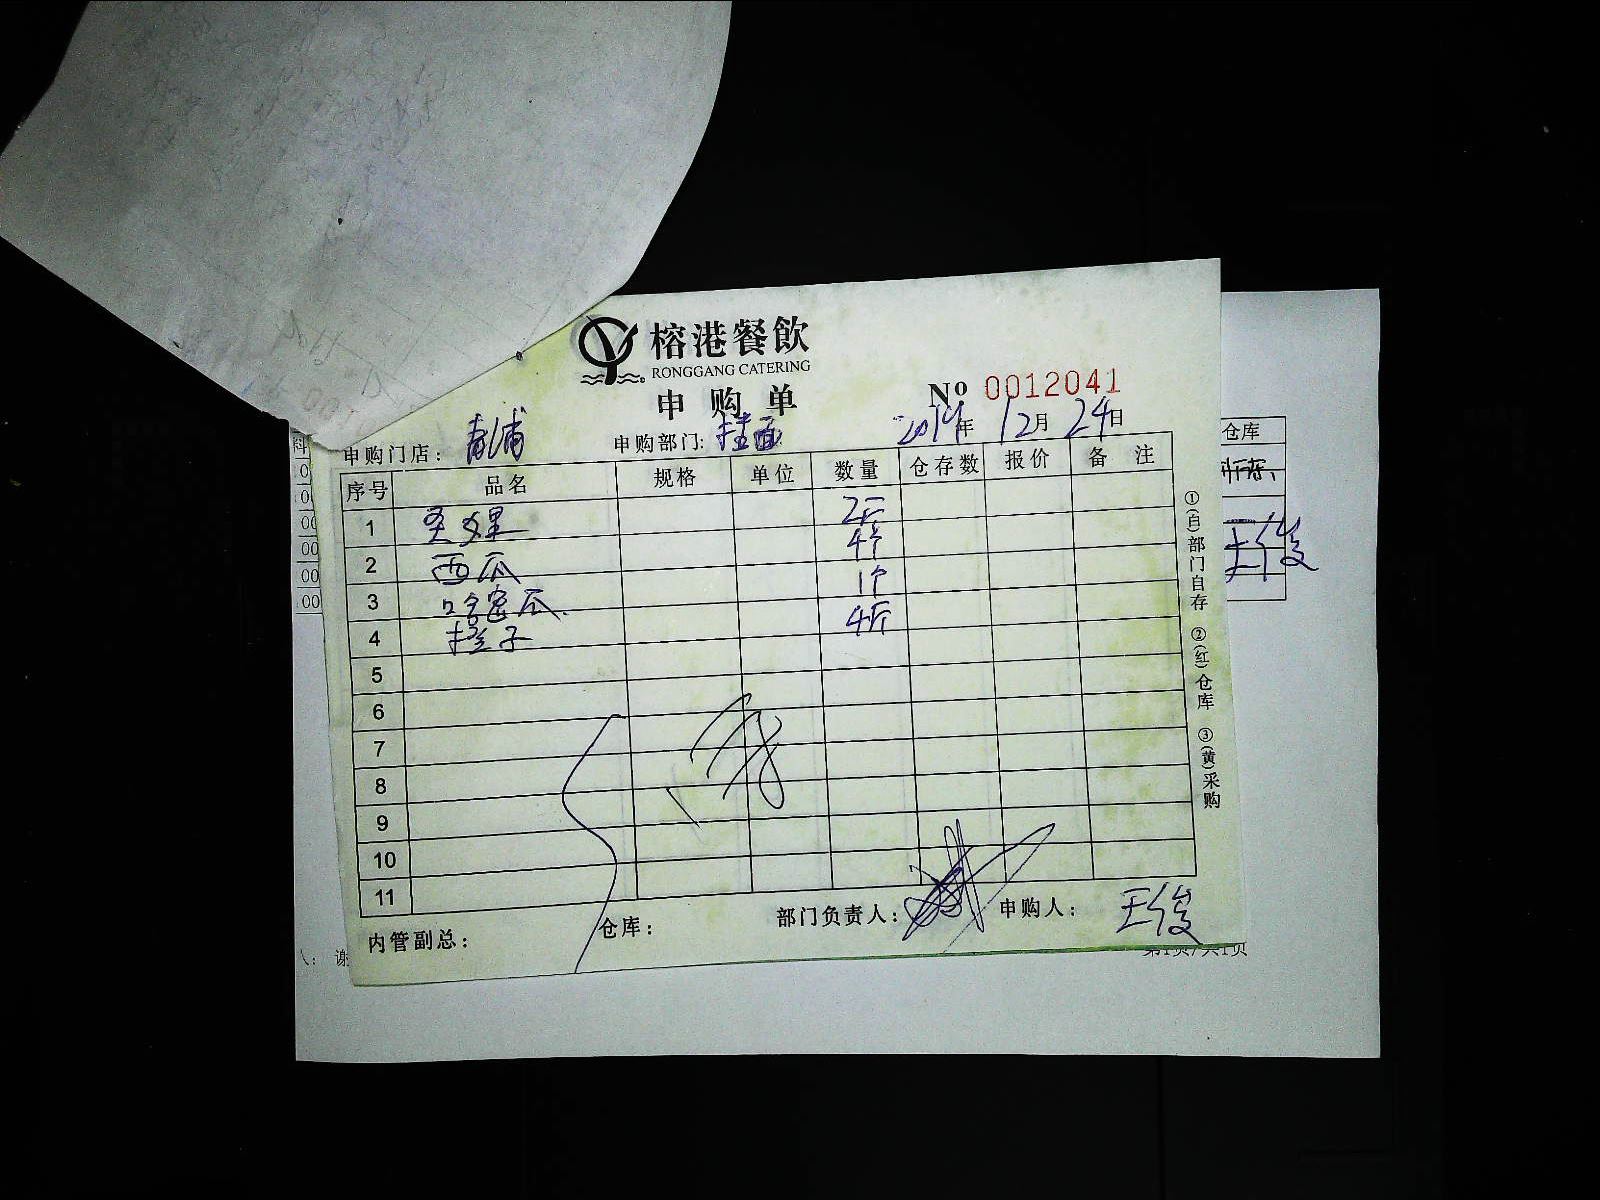 榕港餐飲
RONGGANG CATERING
申购单
№ 0012041
申购门店: 青浦 申购部门: 2014年 12月 24日
序号 品名 规格 单位 数量 仓存数 报价 备注
1 2斤
2 西瓜 4个
3 哈密瓜. 1个
4 橙子 4斤
5
6
7
8
9
10
11
内管副总: 仓库: 部门负责人: 申购人: 王俊
①(白)部门自存 ②(红)仓库 ③(黄)采购
仓库
王俊
料
00
00
00
人: 谢
第1页/共1页